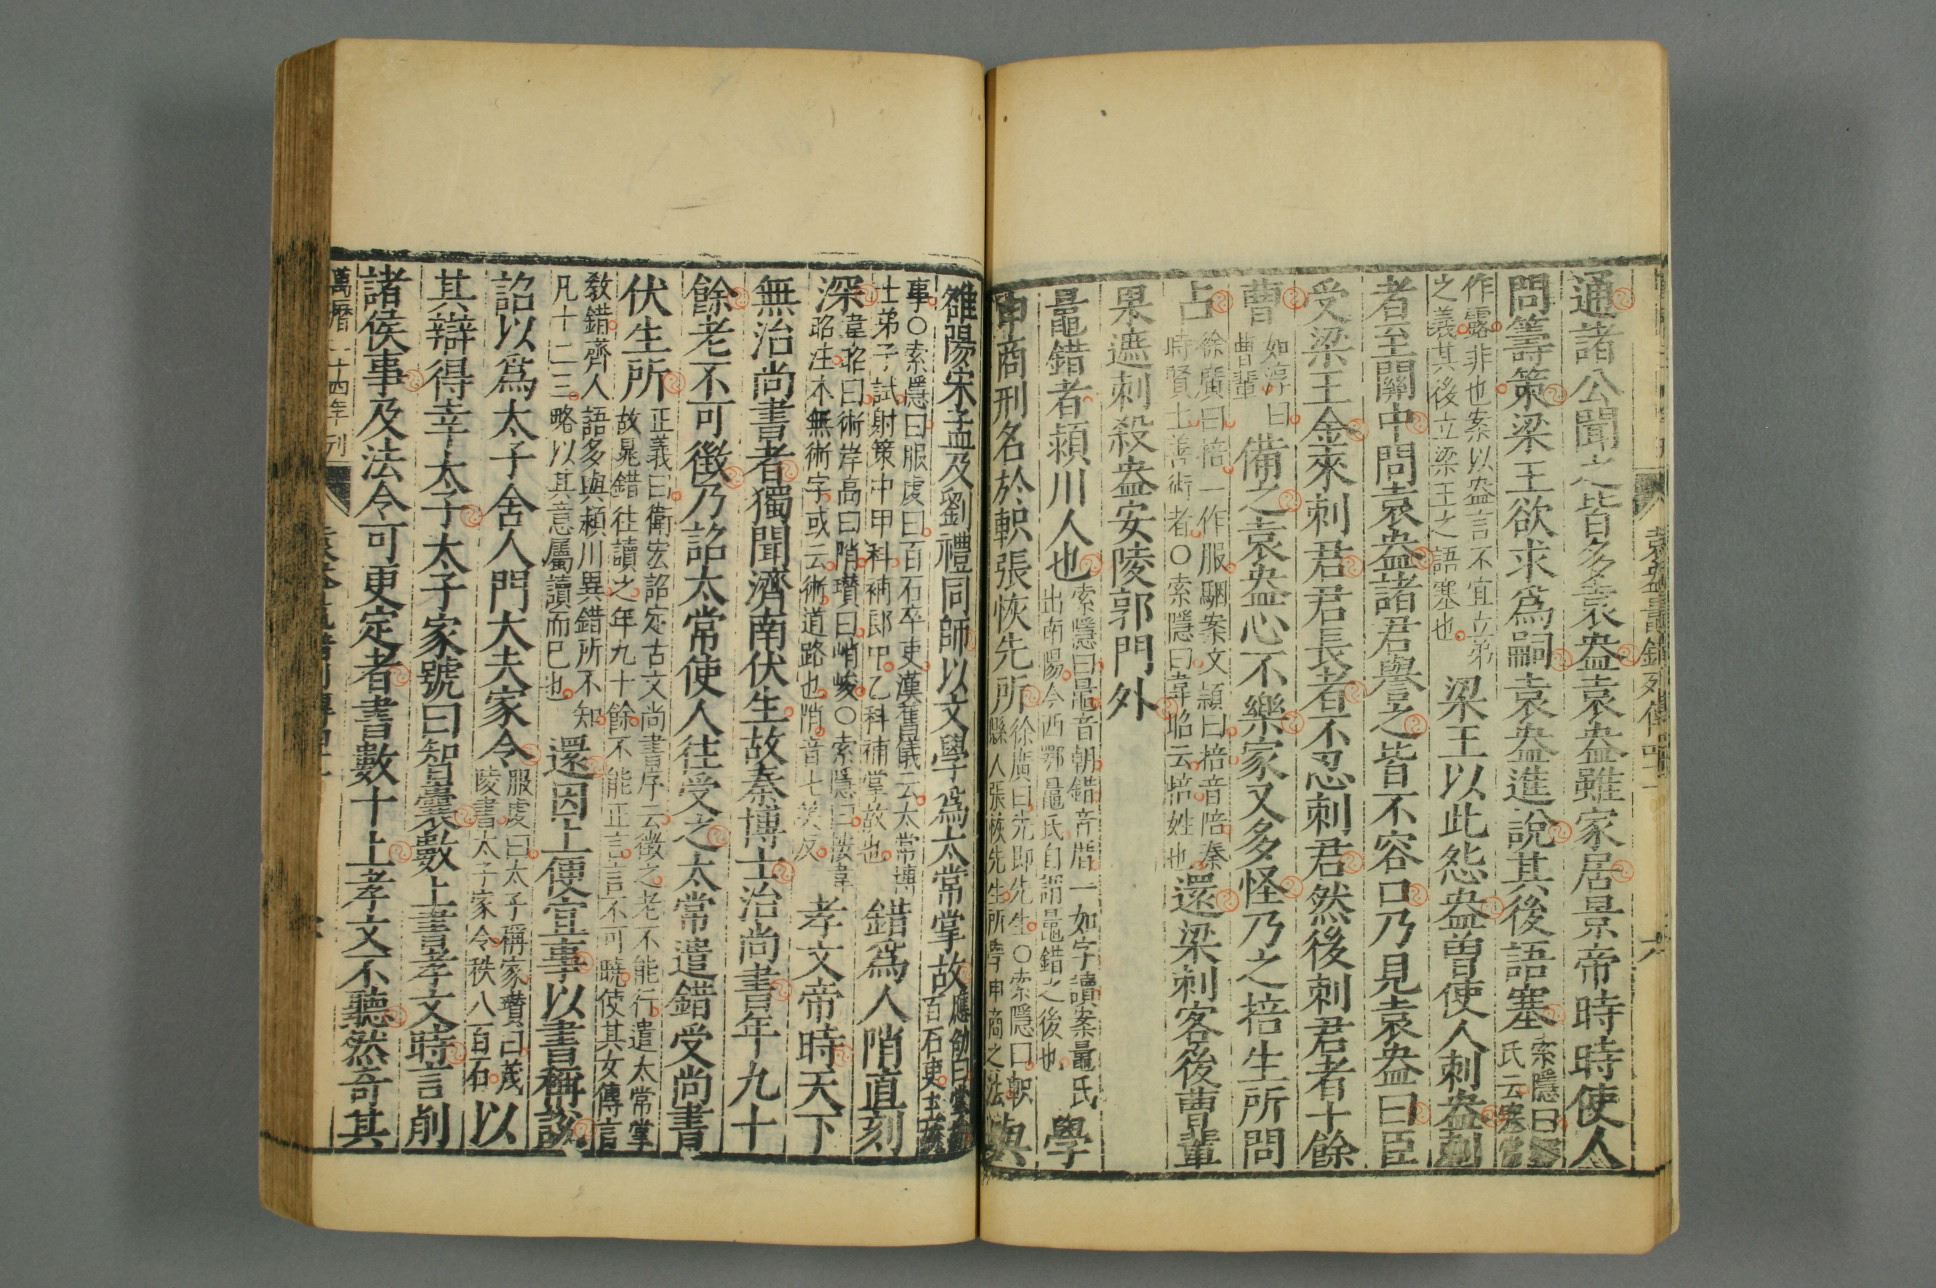 袁盎鼂錯列傳四十一
通諸公聞之皆多袁盎袁盎雖家居景帝時時使人
問籌策梁王欲求爲嗣袁盎進說其後語塞索隱曰
氏云塞當
作露非也案以盎言不宜立弟
之義其後立梁王之語塞也梁王以此怨盎曾使人刺盎刺
者至關中問袁盎諸君譽之皆不容口乃見袁盎曰臣
受梁王金來刺君君長者不忍刺君然後刺君者十餘
曹如淳曰
曹輩備之袁盎心不樂家又多怪乃之棓生所問
占徐廣曰棓一作服駰案文穎曰棓音陪秦
時賢士善術者○索隱曰韋昭云棓姓也還梁刺客後曹輩
果遮刺殺盎安陵郭門外
鼂錯者潁川人也索隱曰鼂音朝錯音厝一如字讀案鼂氏
出南陽今西鄂鼂氏自謂鼂錯之後也學
申商刑名於軹張恢先所徐廣曰先即先生○索隱曰軹
縣人張恢先生所學申商之法與
雒陽宋孟及劉禮同師以文學爲太常掌故應劭曰掌故
百石吏主故
事○索隱曰服虔曰百石卒吏漢舊儀云太常博
士弟子試射策中甲科補郎中乙科補掌故也錯爲人陗直刻
深韋昭曰術岸高曰陗瓚曰峭峻○索隱曰按韋
昭注本無術字或云術道路也陗音七笑反孝文帝時天下
無治尚書者獨聞濟南伏生故秦博士治尚書年九十
餘老不可徵乃詔太常使人往受之太常遣錯受尚書
伏生所正義曰衛宏詔定古文尚書序云徵之老不能行遣太常掌
故晁錯往讀之年九十餘不能正言言不可曉使其女傳言
教錯齊人語多與潁川異錯所不知
凡十二三略以其意屬讀而已也還因上便宜事以書稱說
詔以爲太子舍人門大夫家令服虔曰太子稱家瓚曰茂
陵書太子家令秩八百石以
其辯得幸太子太子家號曰智囊數上書孝文時言削
諸侯事及法令可更定者書數十上孝文不聽然奇其
萬曆二十四年刊